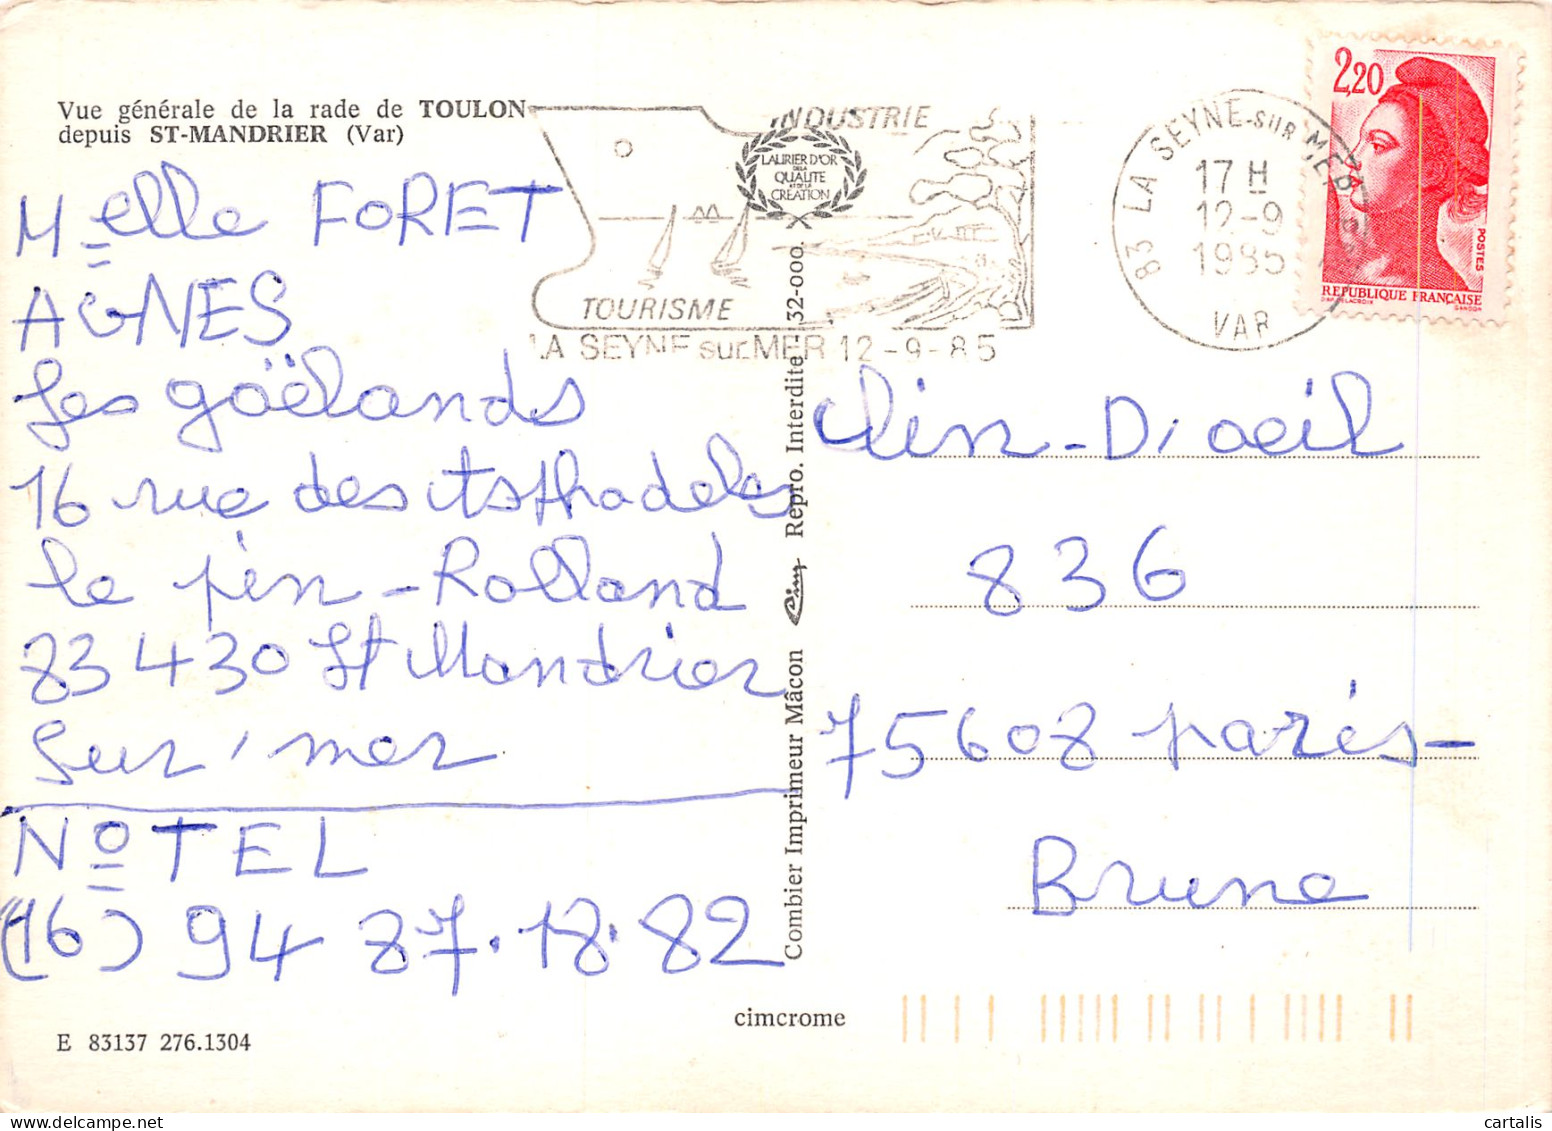 Vue générale de la rade de TOULON
depuis ST-MANDRIER (Var)
INDUSTRIE
LAURIER D'OR
DE LA
QUALITE
ET DE LA
CREATION
TOURISME
LA SEYNE sur MER 12-9-85
83 LA SEYNE-SUR-MER
17 H
12-9
1985
VAR
2,20
POSTES
REPUBLIQUE FRANÇAISE
D'APRES DELACROIX
GANDON
Melle FORET
AGNES
Les goëlands
16 rue des Asphodeles
le pin-Rolland
83430 St Mandrier
sur'mer
No TEL
(16) 94 87.18.82
Combier Imprimeur Mâcon Cim Repro. Interdite - 32-000.
Clin-D'oeil
836
75608 paris-
Brune
cimcrome
E 83137 276.1304
cartalis